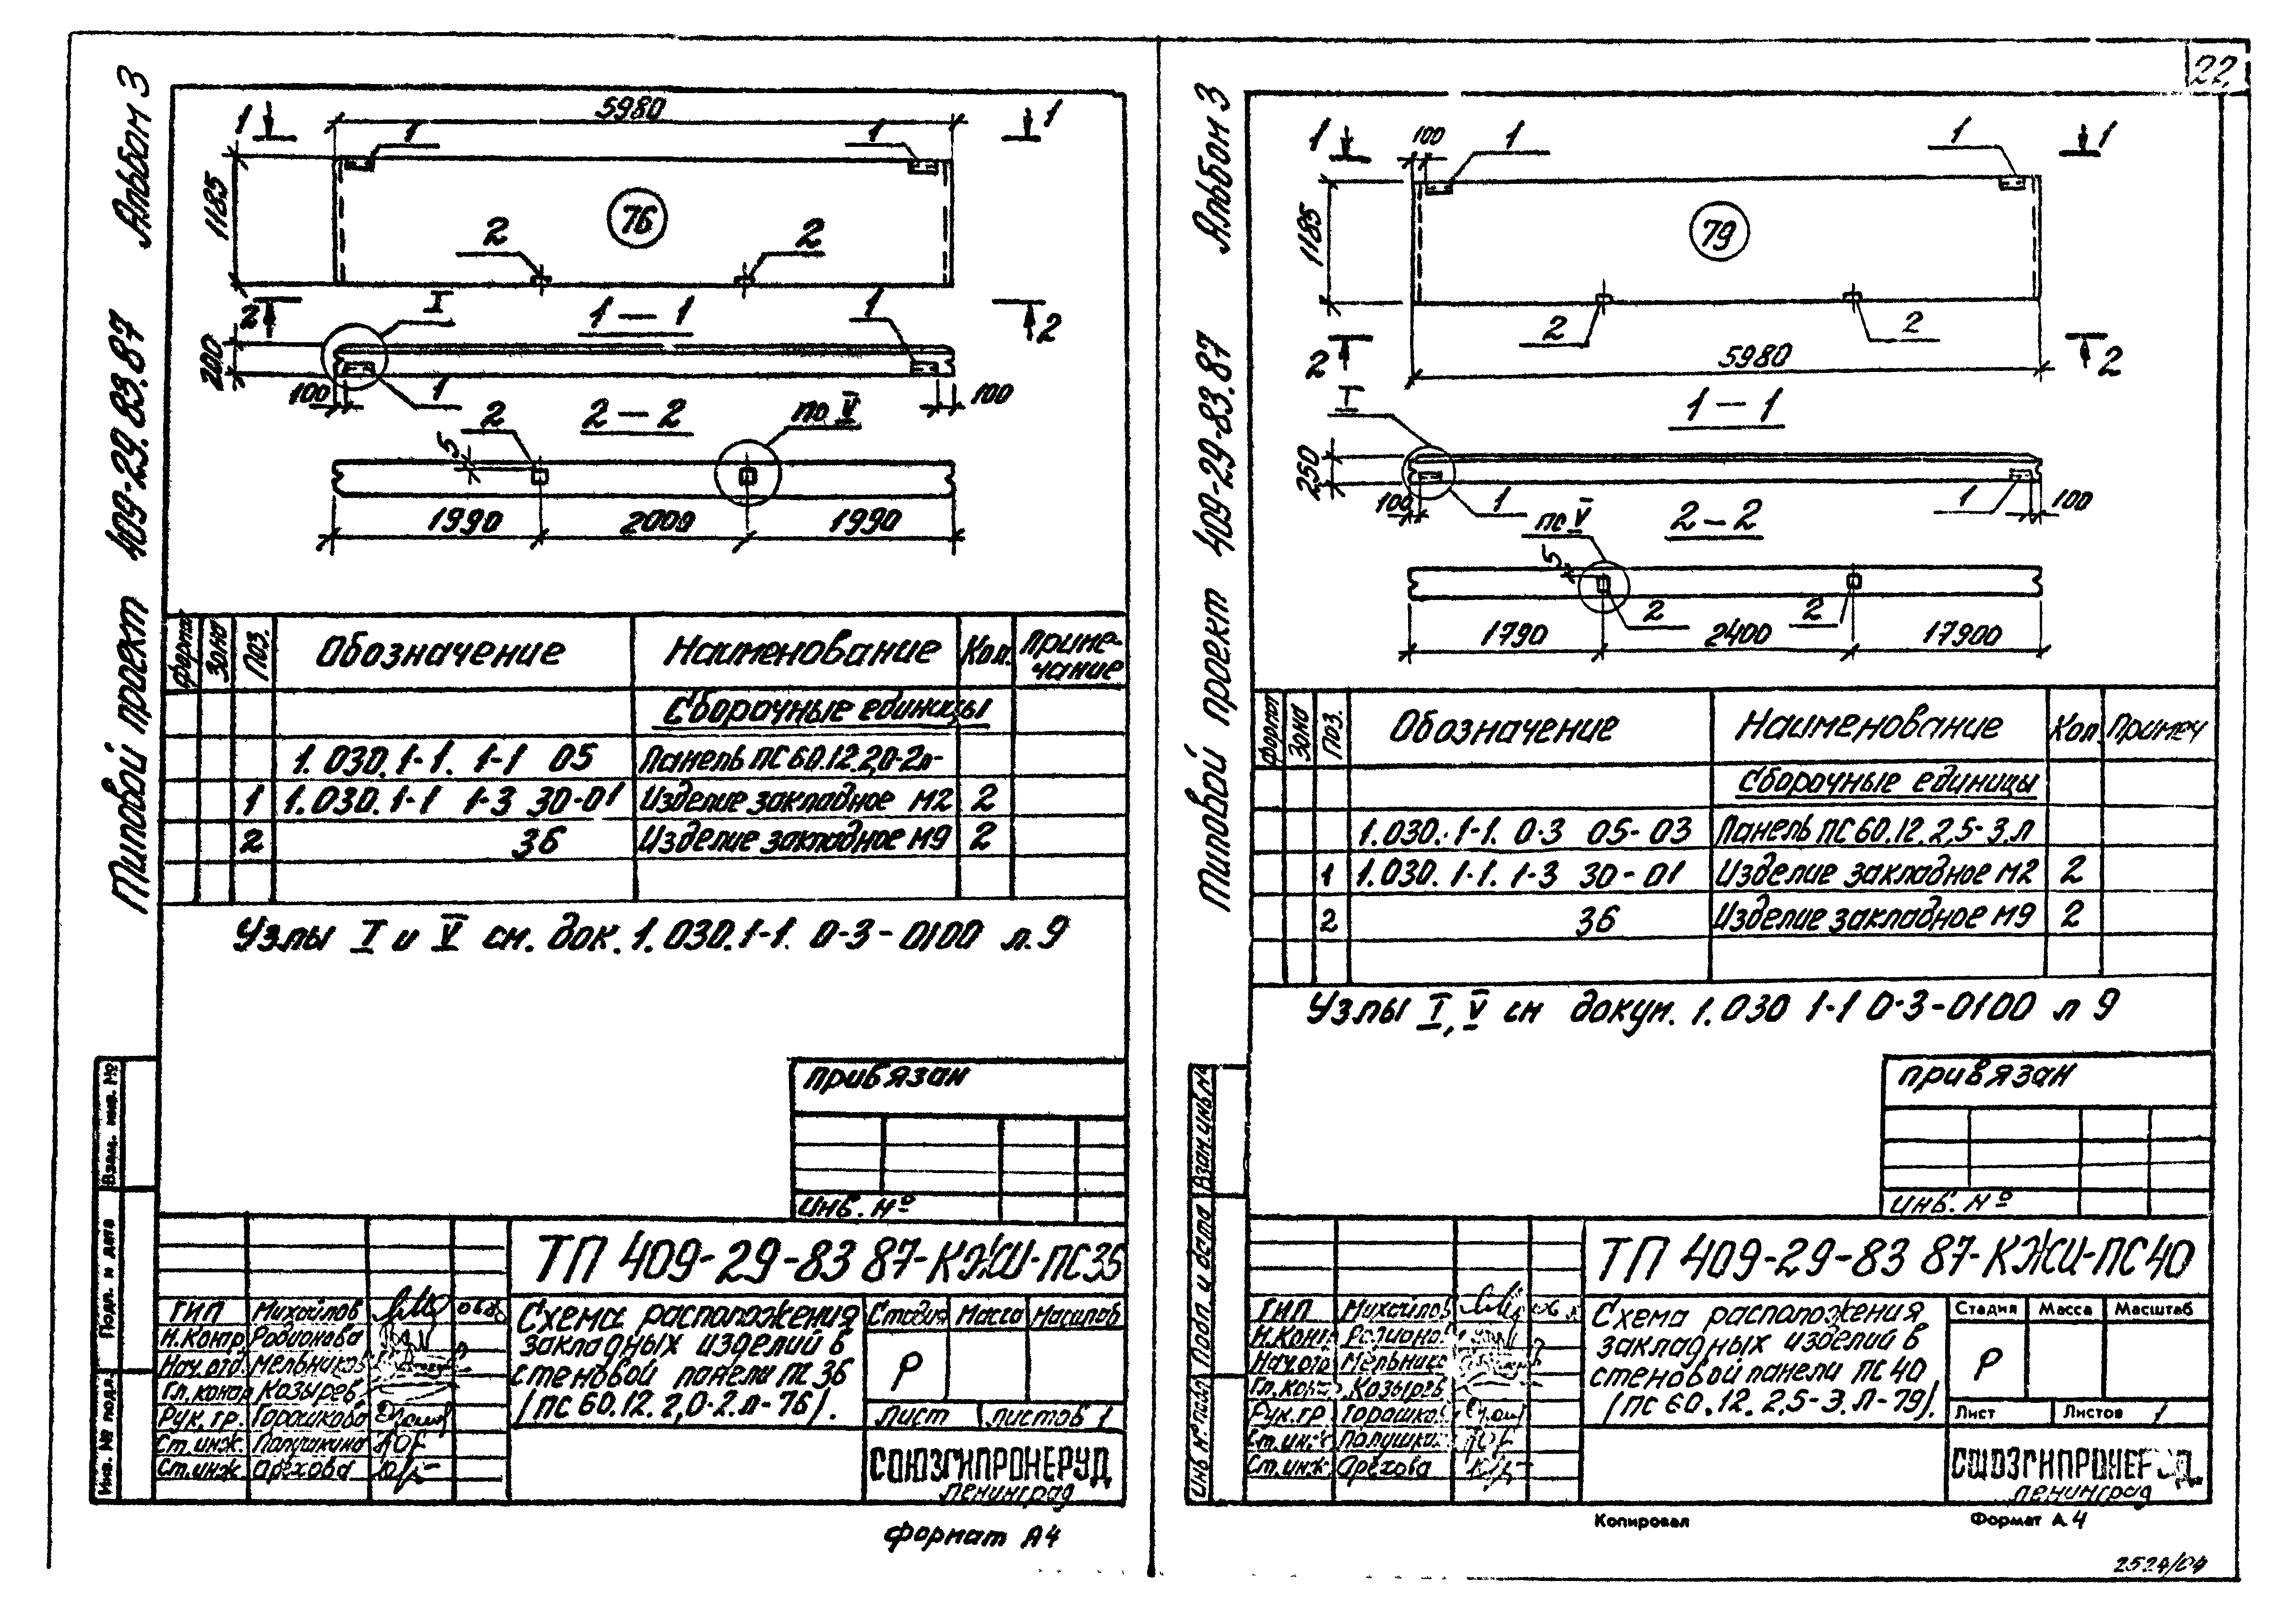 22
Альбом 3
Типовой проект 409-29.83.87
1
5980
1
1
1
1185
76
2
2
2
I
1 — 1
1
2
200
100
1
100
2
2 — 2
по V
5
1990
2000
1990
Формат
Зона
Поз.
Обозначение
Наименование
Кол.
Приме-
чание
Сборочные единицы
1.030.1-1. 1-1 05 Панель ПС60.12.2,0-2л-
1 1.030.1-1 1-3 30-01 Изделие закладное М2 2
2 36 Изделие закладное М9 2
Узлы I и V см. док. 1.030.1-1. 0-3-0100 л.9
привязан
инв. №
Взам. инв. №
Подп. и дата
Инв. № подл.
ТП 409-29-83 87-КЖИ-ПС36
ГИП Михайлов
Н.контр. Родионова
Нач.отд. Мельников
Гл.констр Козырев
Рук. гр. Горошкова
Ст.инж. Палушкина
Ст.инж Орехова
Схема расположения
закладных изделий в
стеновой панели ПС 36
(ПС 60.12.2,0-2.л-76).
Стадия Масса Масштаб
Р
Лист Листов 1
СОЮЗГИПРОНЕРУД
Ленинград
Формат А4
Альбом 3
Типовой проект 409-29-83.87
1
100
1
1
1
1185
79
2
2
2
5980
2
I
1 — 1
250
100
1
1
100
по V
2 — 2
5
2
2
1790
2400
17900
Формат
Зона
Поз.
Обозначение
Наименование
Кол.
Примеч
Сборочные единицы
1.030.1-1. 0-3 05-03 Панель ПС60.12.2,5-3.л
1 1.030.1-1. 1-3 30-01 Изделие закладное М2 2
2 36 Изделие закладное М9 2
Узлы I, V см докум. 1.030 1-1 0-3-0100 л 9
привязан
инв. №
Взам.инв.№
Подп. и дата
Инв.№ подл
ТП 409-29-83 87-КЖИ-ПС40
ГИП Михайлов
Н.контр Родионова
Нач.отд Мельников
Гл.констр. Козырев
Рук.гр Горошкова
Ст.инж Палушкина
Ст.инж Орехова
Схема расположения
закладных изделий в
стеновой панели ПС 40
(ПС 60.12. 2,5-3.Л-79).
Стадия Масса Масштаб
Р
Лист Листов 1
СОЮЗГИПРОНЕРУД
Ленинград
Копировал
Формат А.4
2524/04